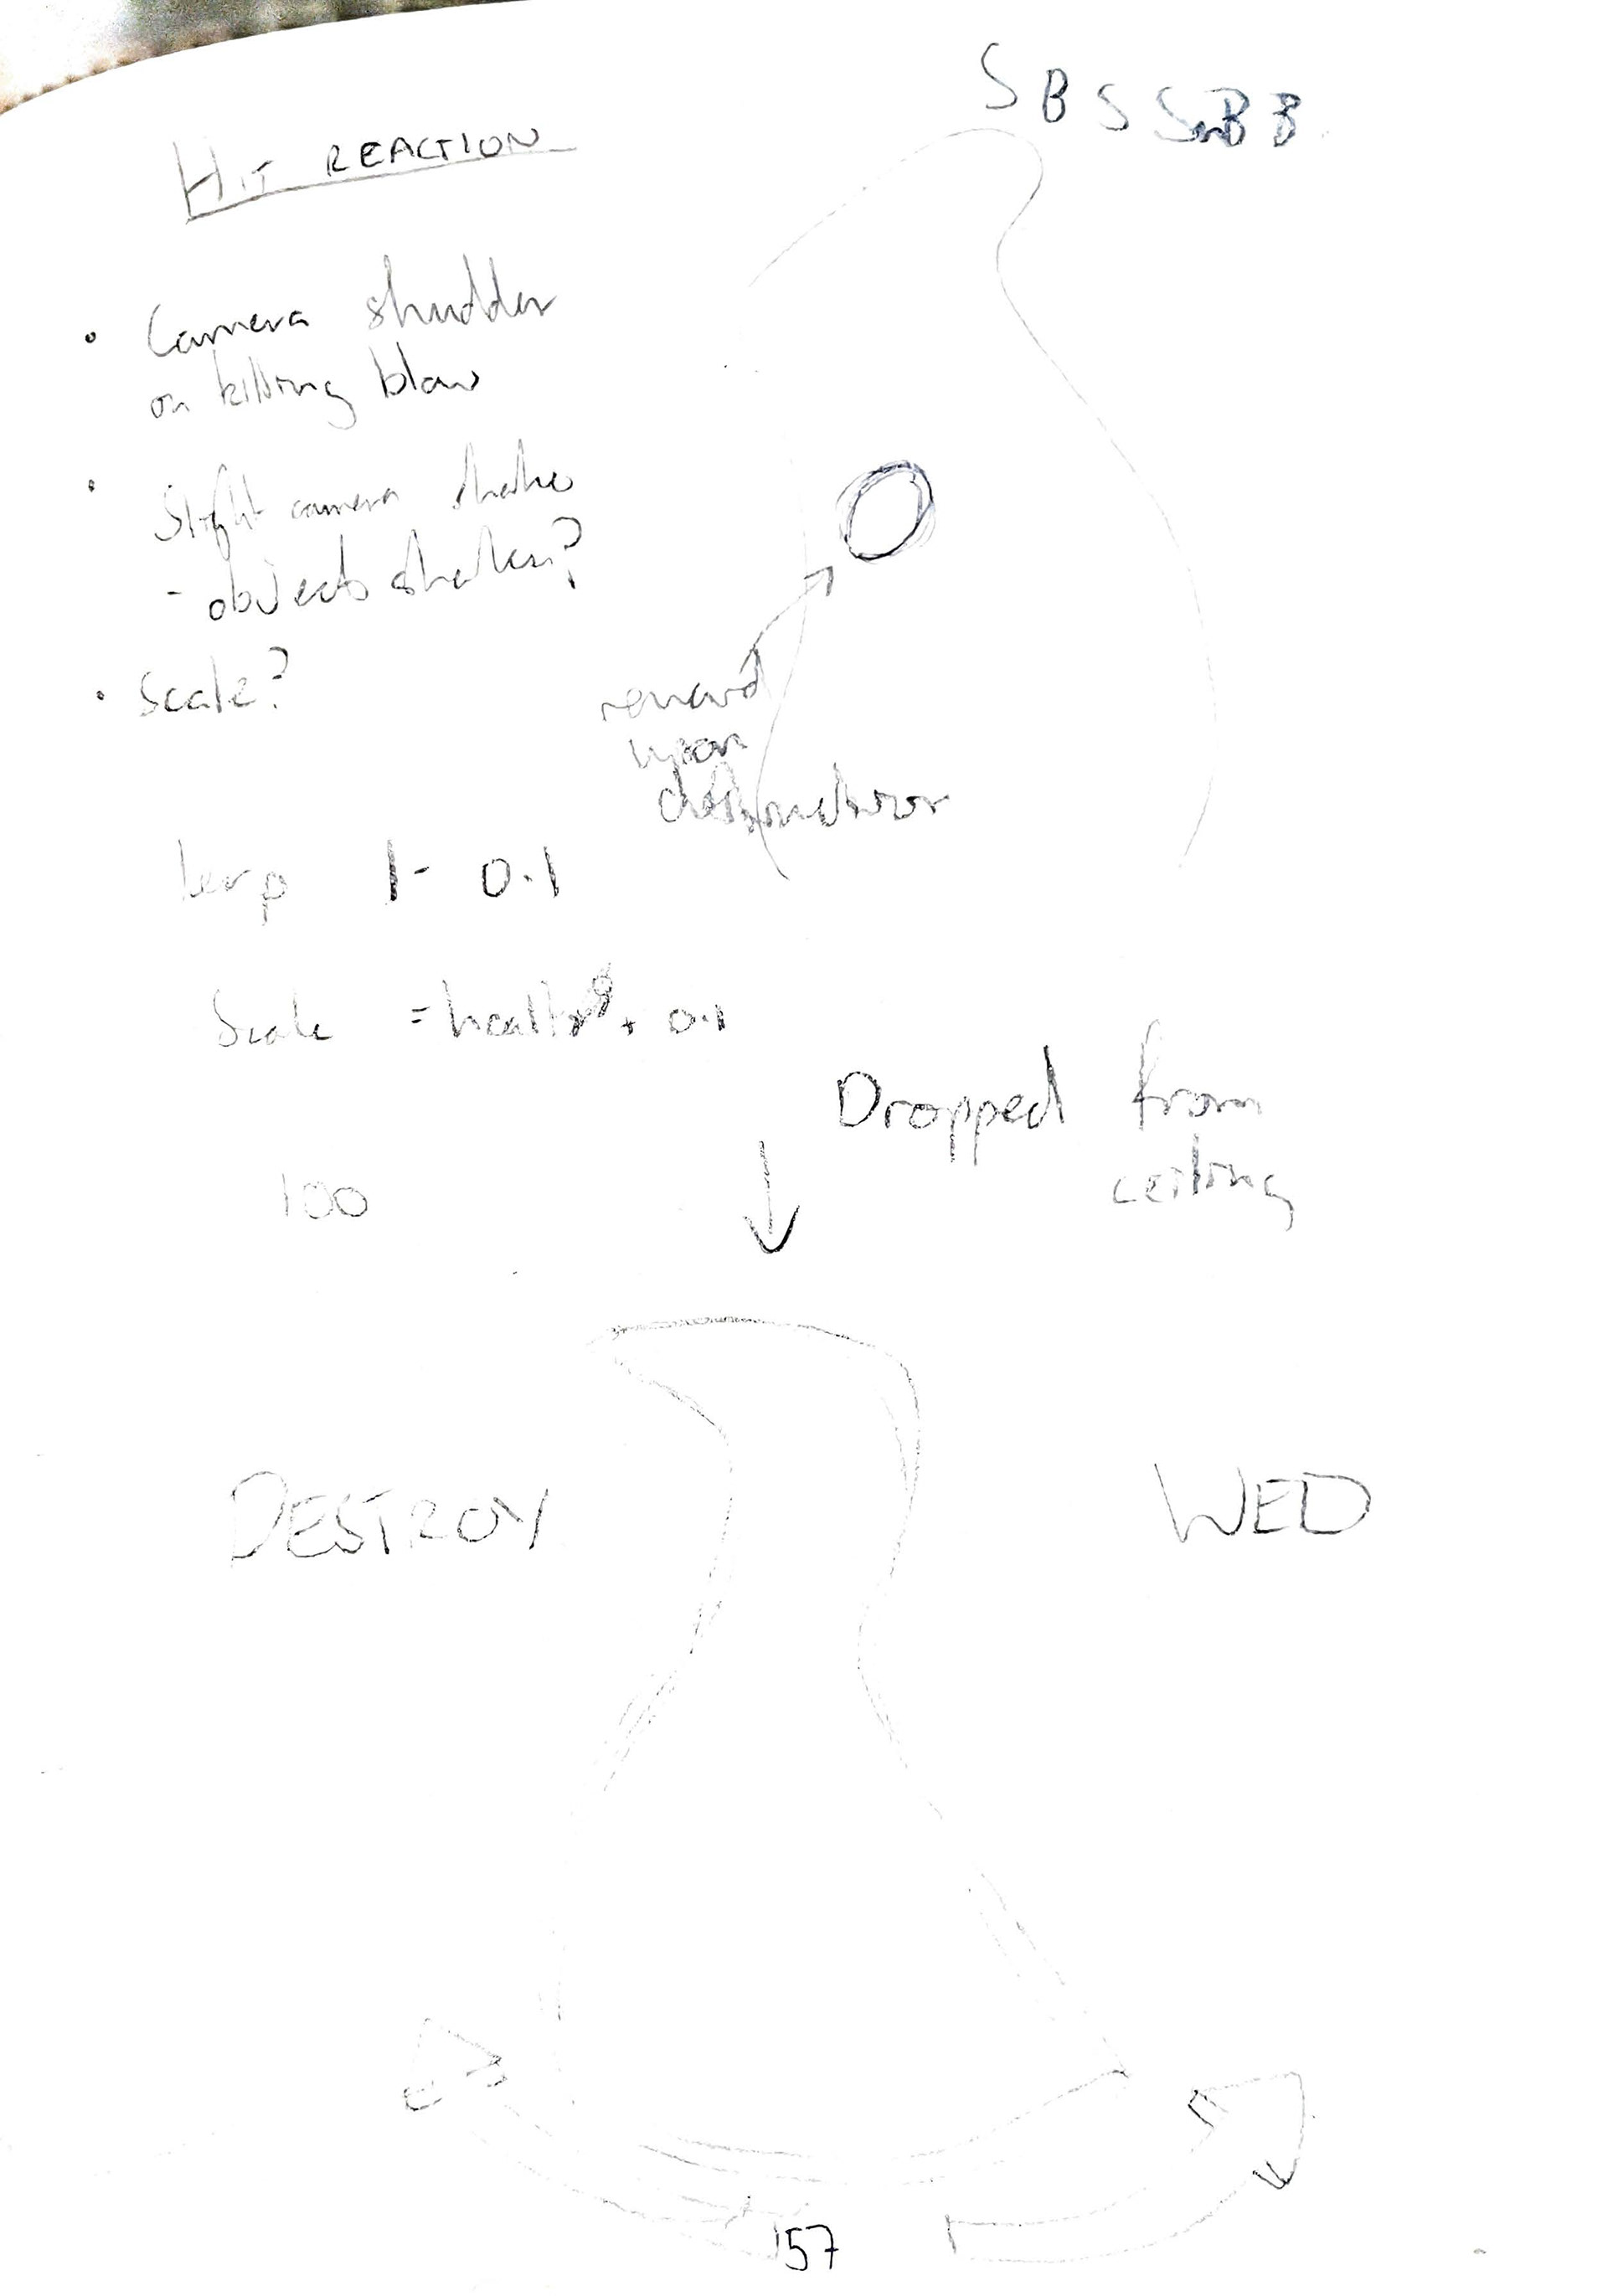 S B S SmB B
HIT REACTION
• Camera shudder
on killing blow
• Slight camera shake
- objects shaken?
• Scale?
reward
upon
destruction
lerp 1 - 0.1
Scale = health + 0.1
Dropped from
ceiling
100
DESTROY
WED
157